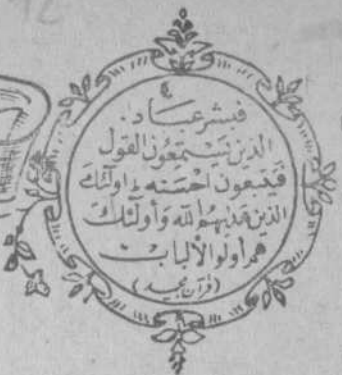 فبشر عباد.
الذین یستمعون القول
فیتبعون احسنه اولئك
الذین هدیهم الله و أولئك
هم أولو الألباب
(قرآن مجید)